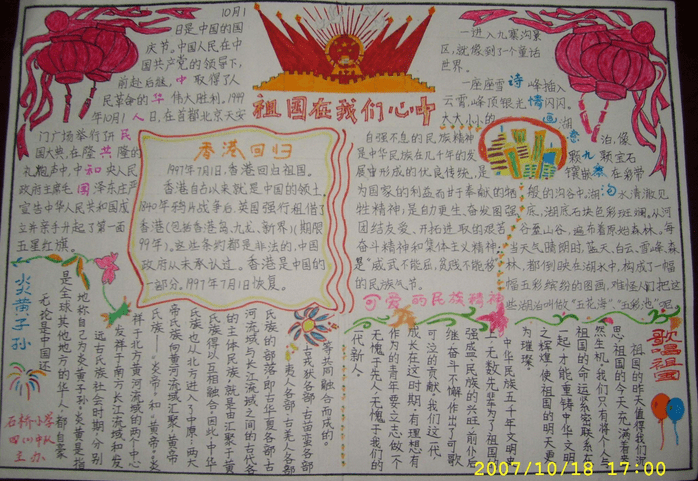 10月1
日是中国的国
庆节。中国人民在中
国共产党的领导下,
前赴后继,中取得了人
民革命的华伟大胜利。1949
年10月1人日,在首都北京天安
门广场举行了开民
国大典,在隆共隆的
礼炮声中,中和央人民
政府主席毛国泽东庄严
宣告中华人民共和国成
立并亲手升起了第一面
五星红旗。
祖国在我们心中
一进入九寨沟景
区,就像到了一个童话
世界。
一座座雪诗峰插入
云霄,峰顶银光情闪闪。
大大小小的画湖
泊,像
颗宝石
镶嵌在彩带
般的沟谷中。湖水清澈见
底,湖底石块色彩斑斓。从河
谷至山谷,遍布着原始森林。每
当天气晴朗时,蓝天、白云、雪峰、森
林、都倒映在湖水中,构成了一幅
幅五彩缤纷的图画,难怪人们把这
些湖泊叫做“五花海”、“五彩池”呢
香港回归
1997年7月1日,香港回归祖国。
香港自古以来就是中国的领土,
1840年鸦片战争后,英国强行租借了
香港(包括香港岛、九龙、新界)(期限
99年)。这些条约都是非法的,中国
政府从未承认过。香港是中国的
一部分,1997年7月1日恢复。
自强不息的民族精神
是中华民族在几千年的发
展中形成的优良传统,是
为国家的利益而甘于奉献的牺
牲精神;是自力更生、奋发图强
团结友爱、开拓进取的艰苦
奋斗精神和集体主义精神;
是“威武不能屈,贫贱不能移”
的民族气节。
可爱的民族精神
炎黄子孙
无论是中国还
是全球其他地方的华人,都自豪
地称自己为“炎黄子孙”。炎黄是指
远古氏族社会时期,分别
发祥于南方长江流域和发
祥于北方黄河流域的两个中心
氏族——“炎帝”和“黄帝”。炎
帝氏族向黄河流域汇聚,黄帝
氏族也从北方进入了中原,两大
氏族得以互相融合。因此中华
的主体民族,就是由汇聚于黄
河流域与长江流域之间的古代各
民族的部落即古华夏各部、古
夷人各部、古羌人各部、
古戎狄各部、古苗蛮各部
等共同融合而成。
歌唱祖国
祖国的昨天值得我们深
思,祖国的今天充满着勃
然生机,我们只有将个人与
祖国的命运紧密联系在
一起才能重铸中华文明
之辉煌,使祖国的明天更
为璀璨。
中华民族五千年文明史
上,无数先辈为了祖国的
强盛,民族的兴旺,前仆后
继、奋斗不懈,作出了可歌
可泣的贡献,我们这一代,
成长在这时期,有理想有
作为的青年要立志做个
无愧于先人、无愧于我们的时
代新人。
石桥小学
四(1)中队
主办
2007/10/18 17:00